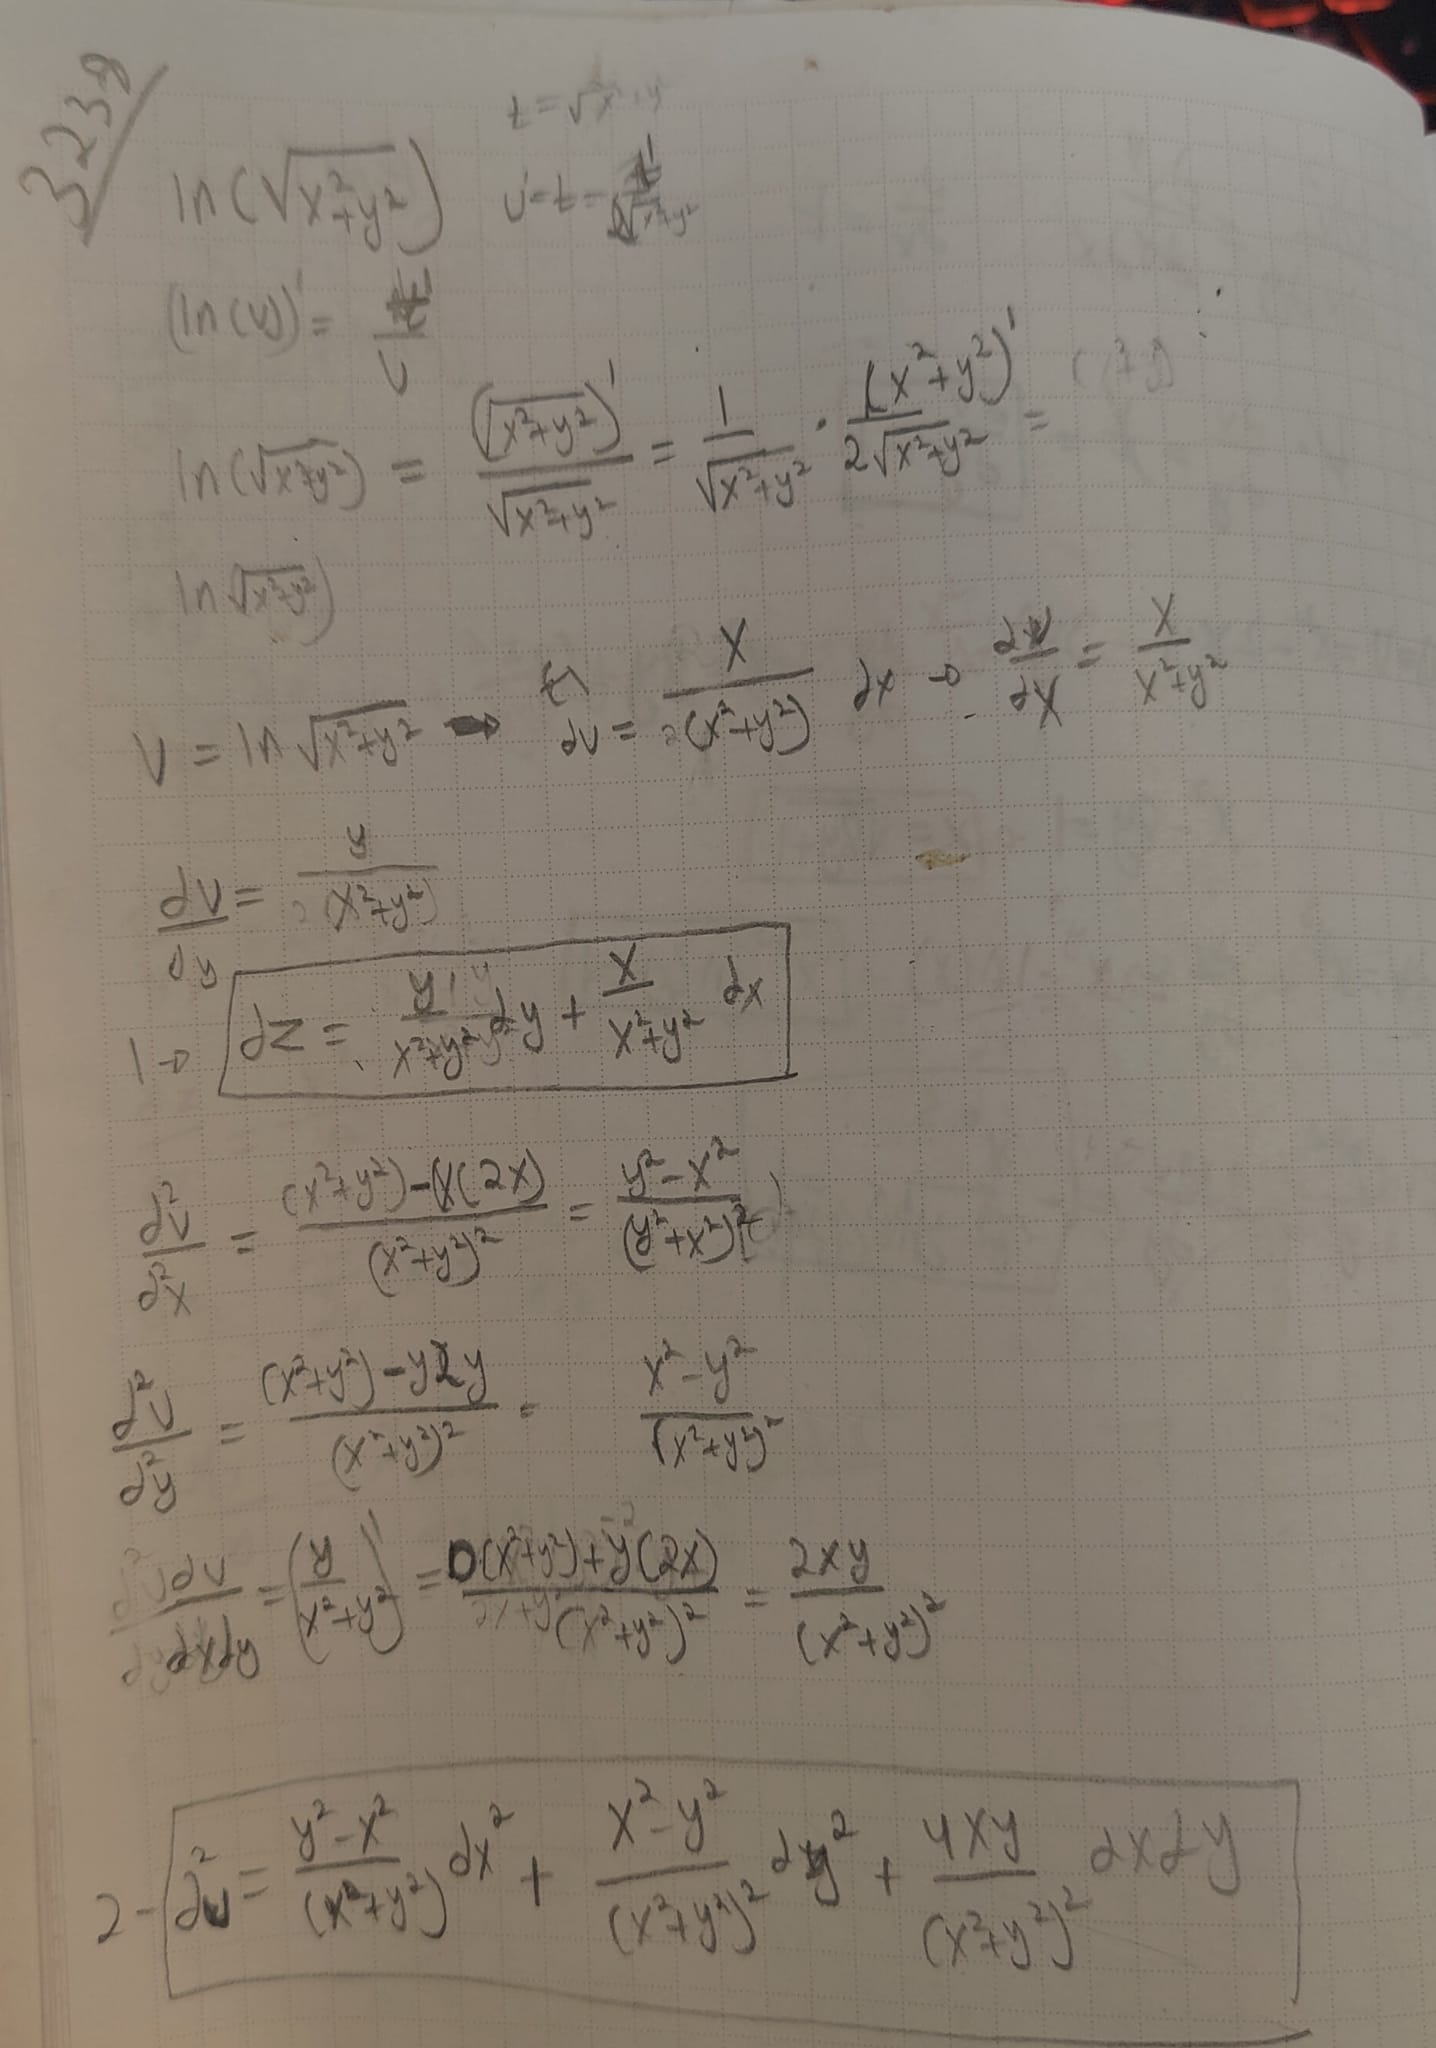 3238
t = √x²+y²
ln(√x²+y²)
(ln(u))' = t'/u
ln(√x²+y²) = (√x²+y²)'/√x²+y² = 1/√x²+y² · (x²+y²)'/2√x²+y² =
ln √x²+y²)
U = ln √x²+y² → du = x/(x²+y²) dx → du/dx = x/x²+y²
du/dy = y/(x²+y²)
1→ dz = y/x²+y² dy + x/x²+y² dx
d²u/d²x = (x²+y²)-x(2x)/(x²+y²)² = y²-x²/(y²+x²)²
d²u/d²y = (x²+y²)-y2y/(x²+y²)² = x²-y²/(x²+y²)²
du/dxdy = (y/x²+y²)' = 0(x²+y²)+y(2x)/(x²+y²)² = 2xy/(x²+y²)²
2- d²u = y²-x²/(x²+y²) dx² + x²-y²/(x²+y²)² dy² + 4xy/(x²+y²)² dxdy